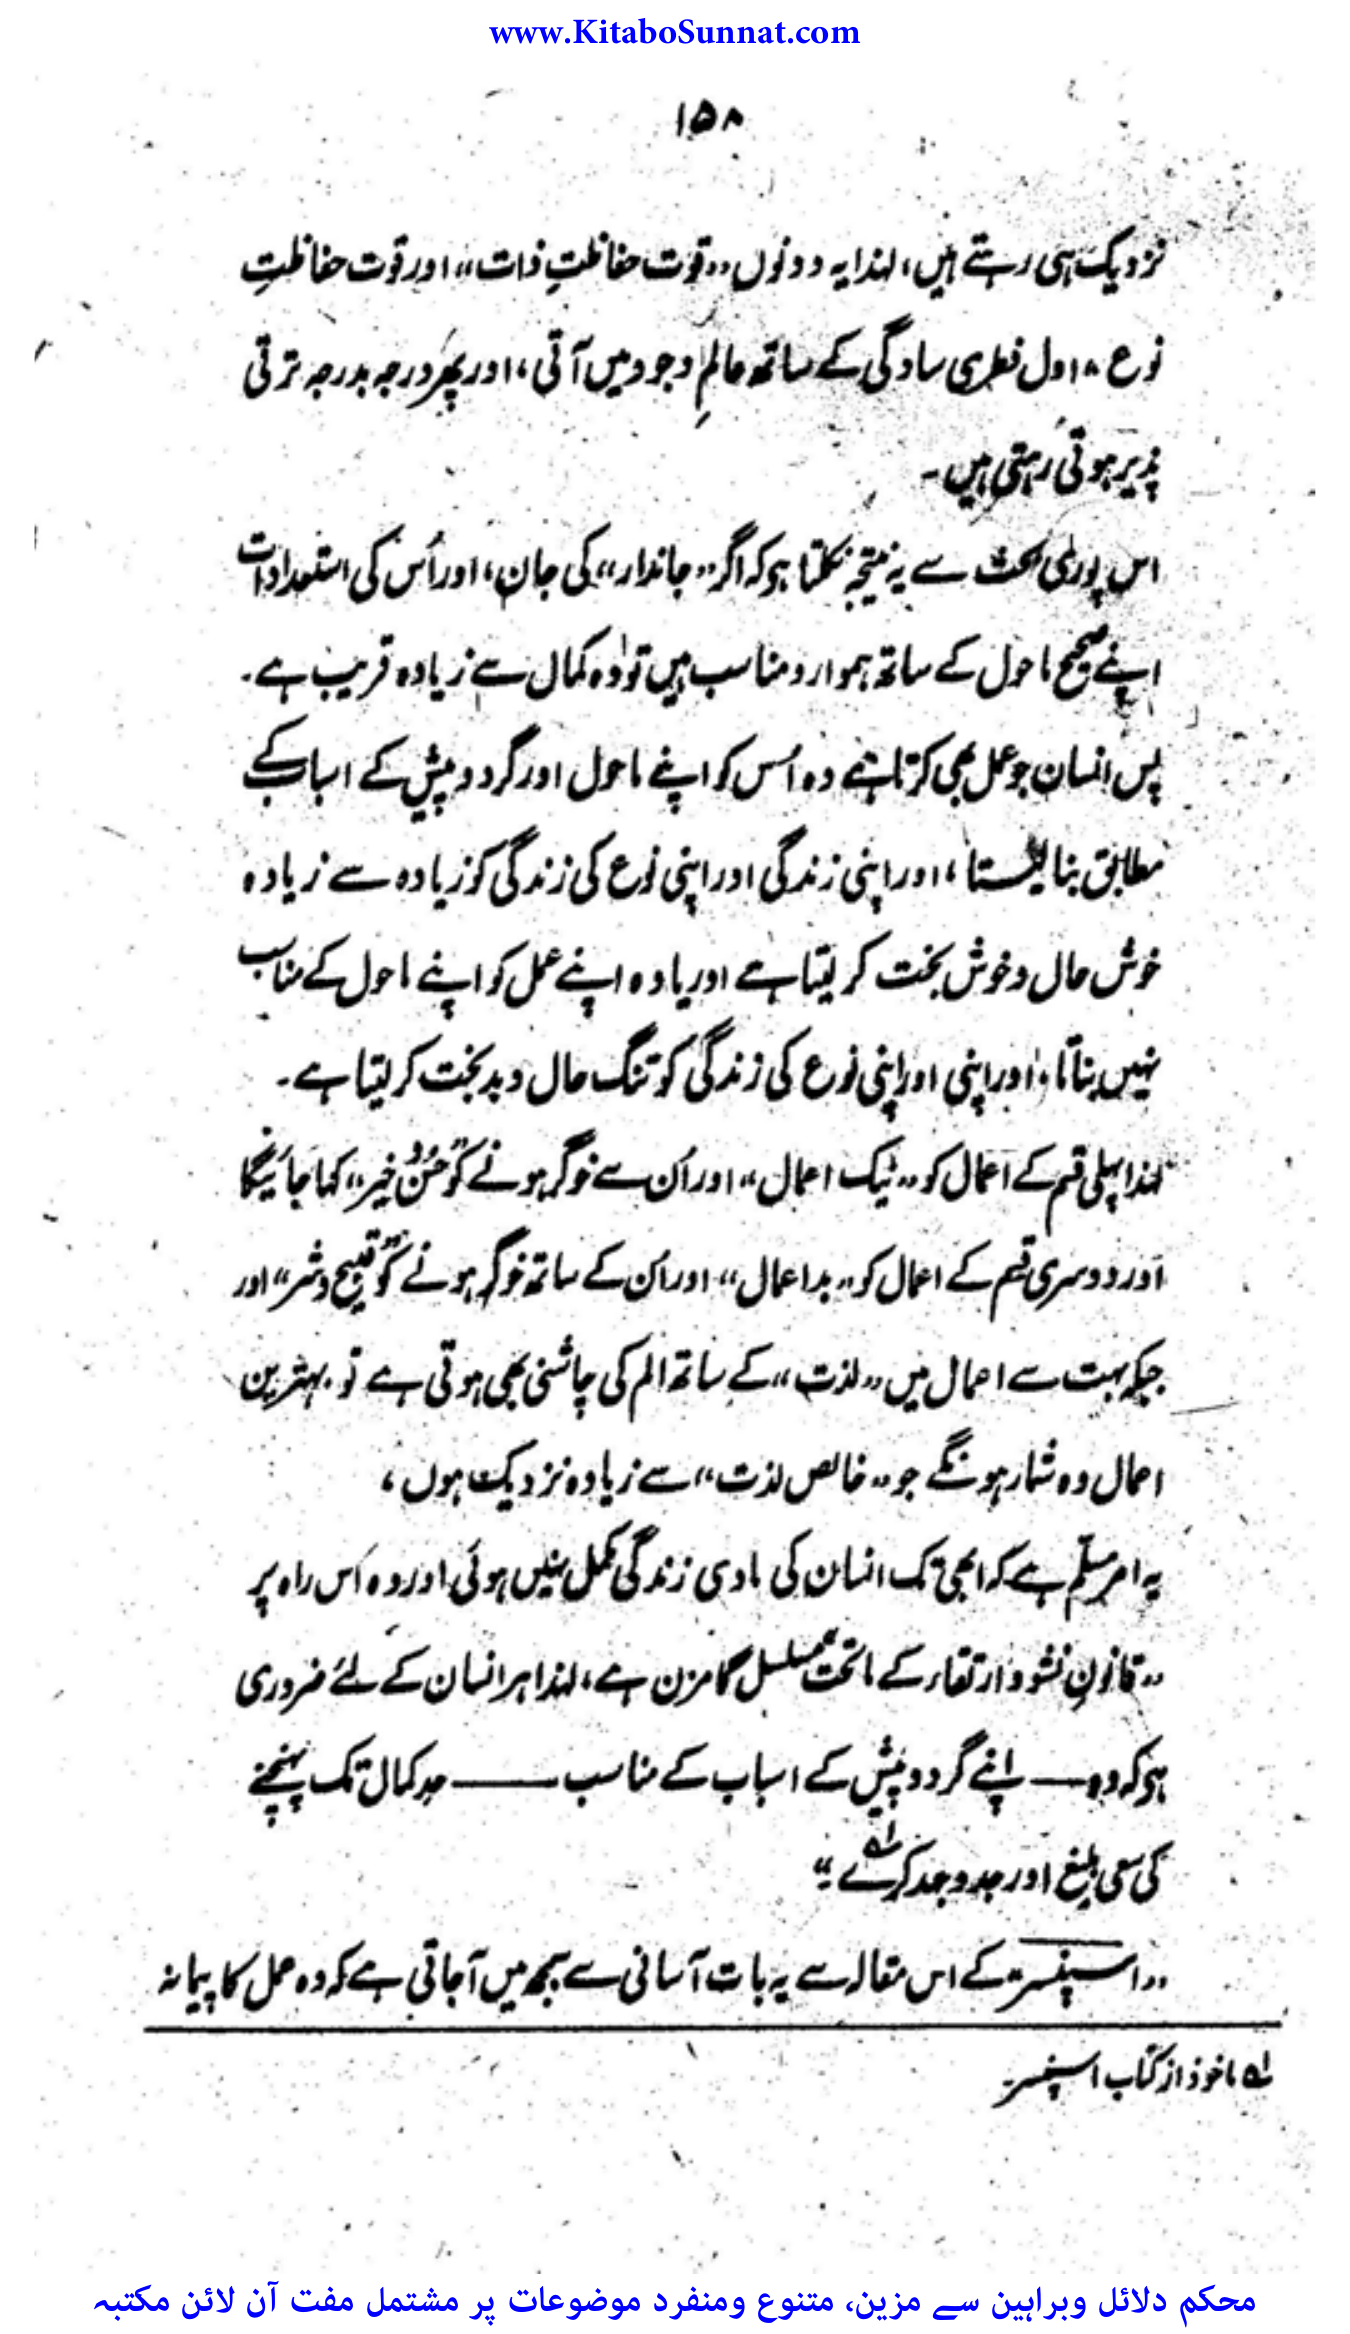 www.KitaboSunnat.com
۱۵۸
نزدیک ہی رہتے ہیں، لہٰذا یہ دونوں "قوت حفاظتِ ذات" اور قوت حفاظتِ
نوع" اول فطری سادگی کے ساتھ عالمِ وجود میں آتی، اور پھر درجہ بدرجہ ترقی
پذیر ہوتی رہتی ہیں۔
اس پوری بحث سے یہ نتیجہ نکلتا ہو کہ اگر "جاندار" کی جان، اور اُس کی استعدادات
اپنے صحیح ماحول کے ساتھ ہموار و مناسب ہیں تو وہ کمال سے زیادہ قریب ہے۔
پس انسان جو عمل بھی کرتا ہے وہ اُس کو اپنے ماحول اور گرد و پیش کے اسباب کے
مطابق بنا لیتا، اور اپنی زندگی اور اپنی نوع کی زندگی کو زیادہ سے زیادہ
خوش حال و خوش بخت کر لیتا ہے اور یا وہ اپنے عمل کو اپنے ماحول کے مناسب
نہیں بناتا، اور اپنی اور اپنی نوع کی زندگی کو تنگ حال و بد بخت کر لیتا ہے۔
لہٰذا پہلی قسم کے اعمال کو "نیک اعمال" اور اُن سے خوگر ہونے کو "حُسن و خیر" کہا جائیگا
اور دوسری قسم کے اعمال کو "بد اعمال" اور اُن کے ساتھ خوگر ہونے کو "قبیح و شر" اور
جبکہ بہت سے اعمال میں "لذت" کے ساتھ الم کی چاشنی بھی ہوتی ہے تو بہترین
اعمال وہ شمار ہونگے جو "خالص لذت" سے زیادہ نزدیک ہوں،
یہ امر مسلّم ہے کہ ابھی تک انسان کی مادی زندگی مکمل نہیں ہوئی اور وہ اس راہ پر
"قانونِ نشو و ارتقاء کے ماتحت" مسلسل گامزن ہے، لہٰذا ہر انسان کے لئے ضروری
ہو کہ وہ —— اپنے گرد و پیش کے اسباب کے مناسب —— حدِ کمال تک پہنچنے
کی سعی بلیغ اور جد و جہد کرے۔" لہ
"اسپنسر کے اس مقالہ سے یہ بات آسانی سے سمجھ میں آجاتی ہے کہ وہ عمل کا پیمانہ
لہ ماخوذ از کتاب اسپنسر
محکم دلائل وبراہین سے مزین، متنوع ومنفرد موضوعات پر مشتمل مفت آن لائن مکتبہ